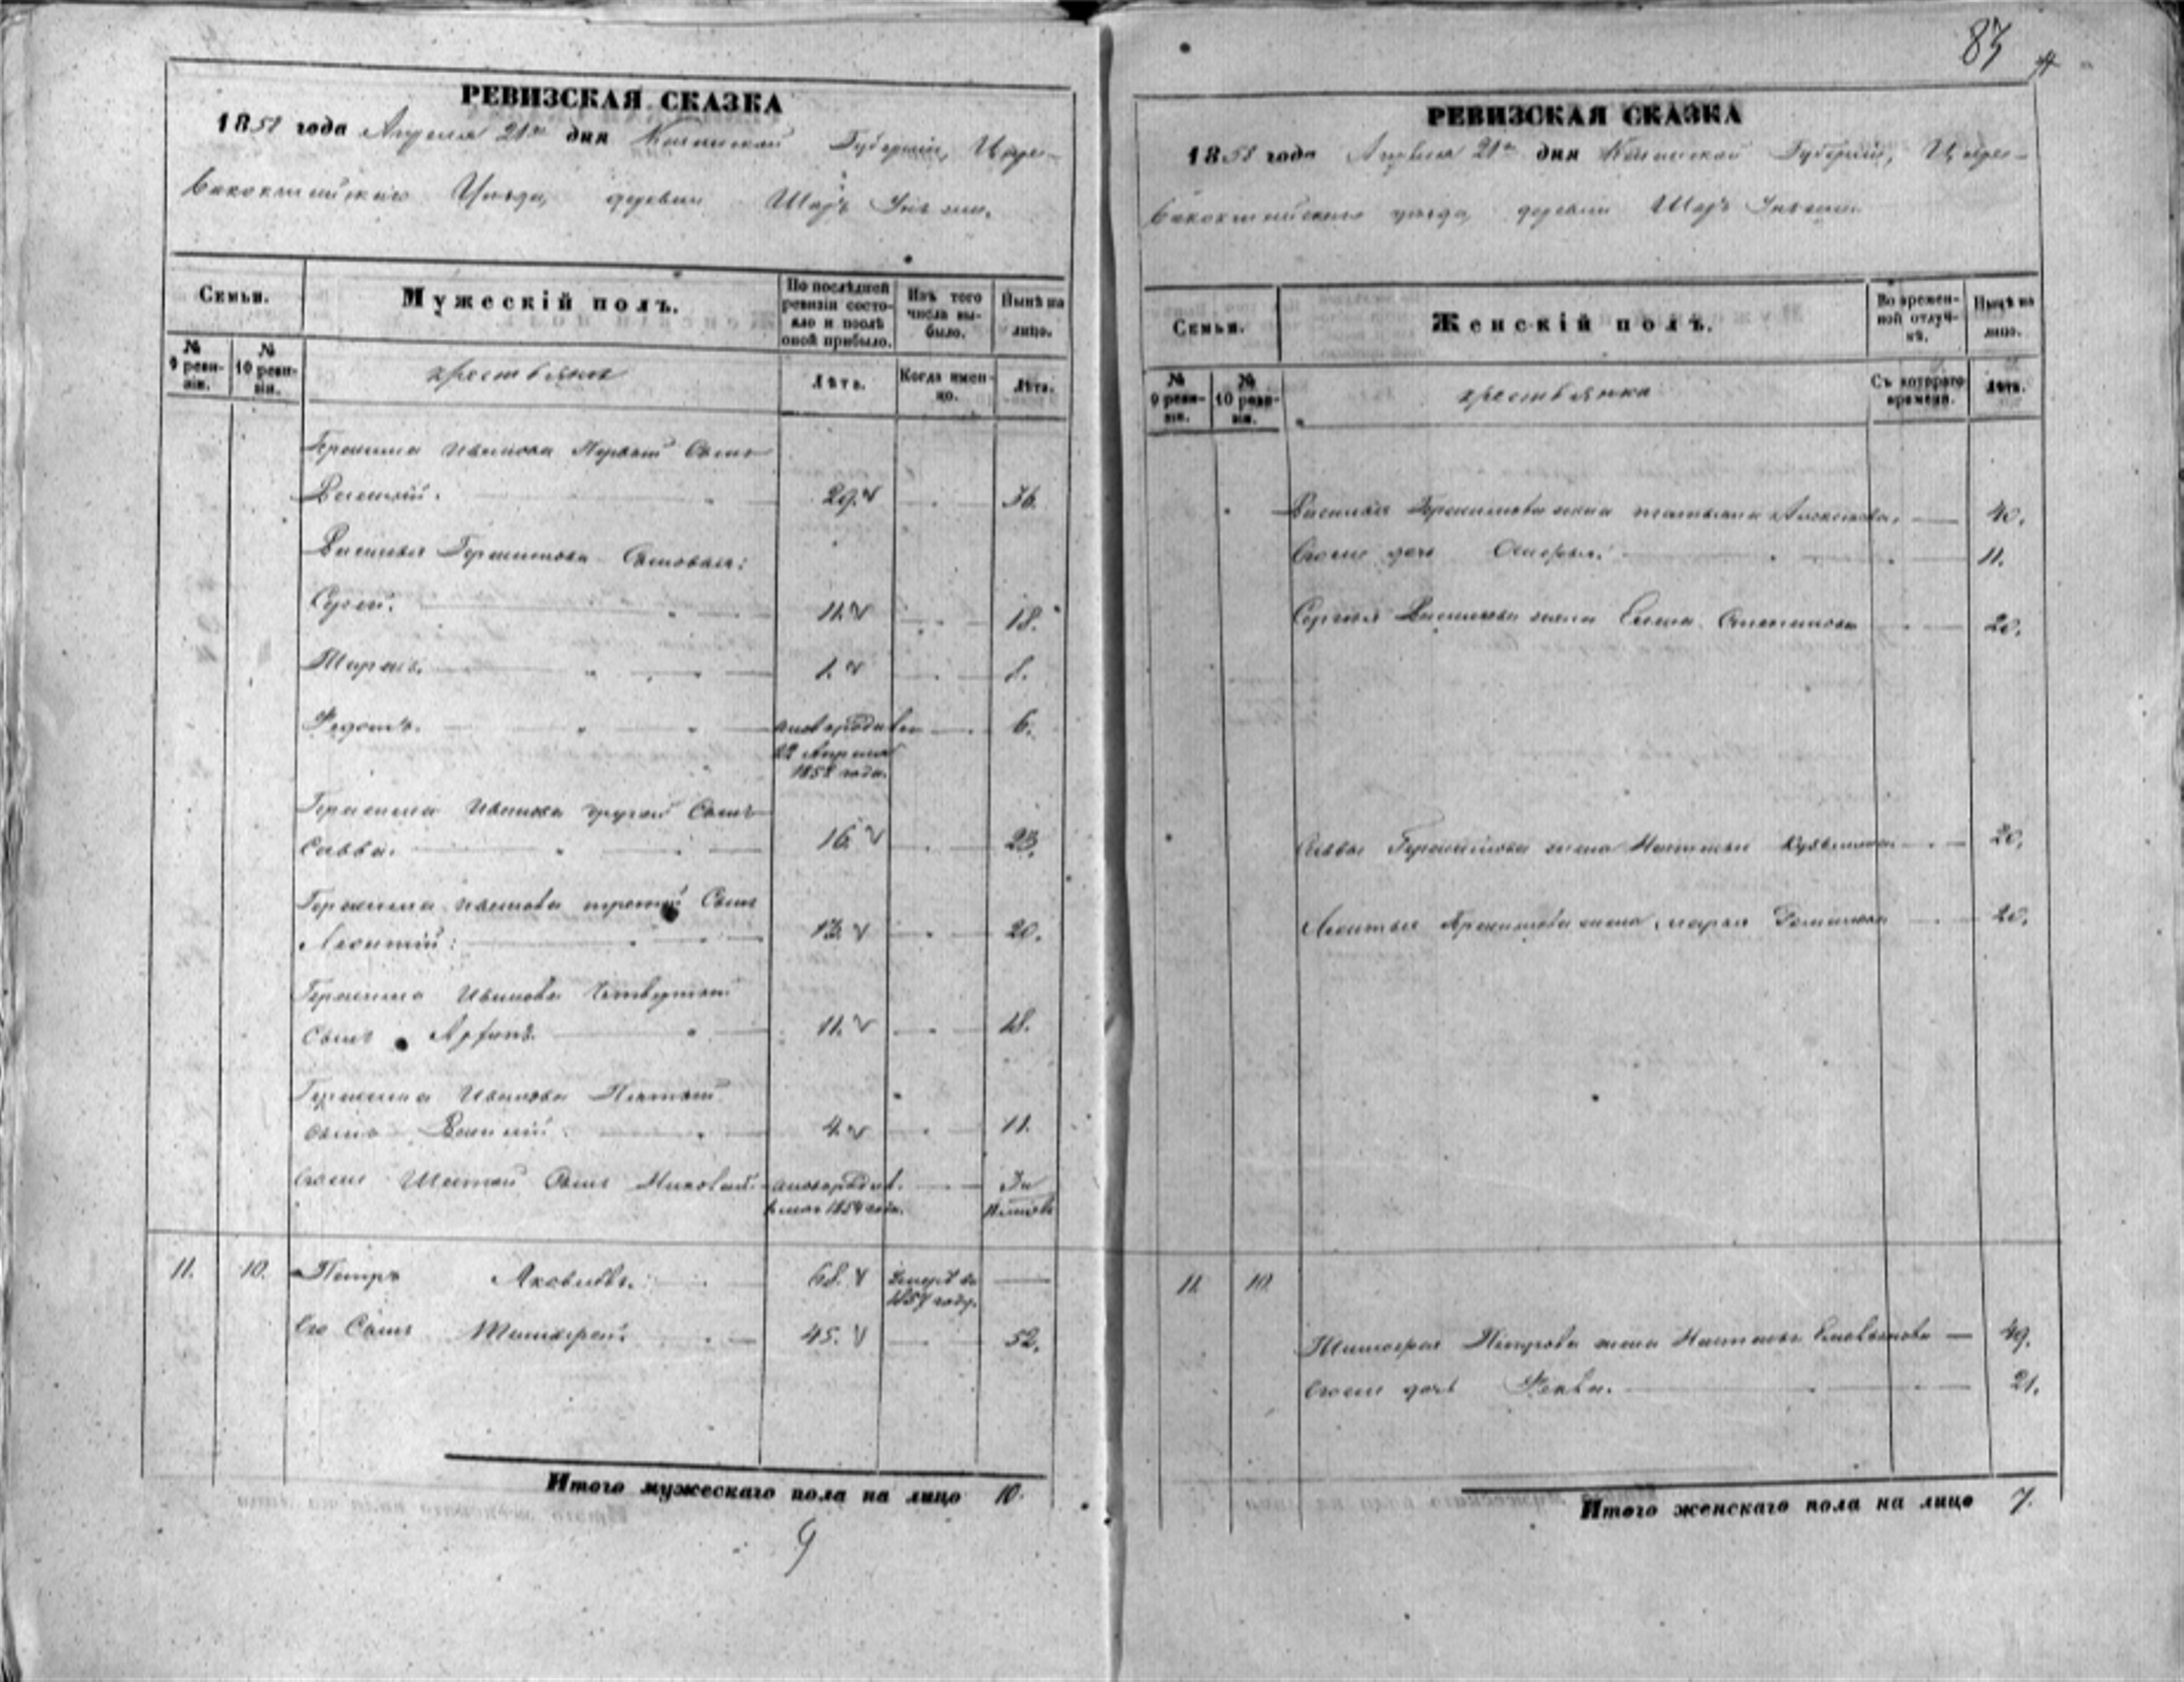 83
РЕВИЗСКАЯ СКАЗКА
1858 года Апреля 21го дня Казанской Губерніи, Царе-
вококшайскаго Уѣзда, деревни Шоръ
Семьи.
Мужескій полъ.
По послѣдней ревизіи состо-яло и послѣ оной прибыло.
Изъ того числа вы-было.
Нынѣ на лицо.
№ 9 реви-зіи.
№ 10 реви-зіи.
крестьяне
Лѣта.
Когда имен-но.
Лѣта.
Герасима Иванова Первый Сынъ
Василій. 29. 36.
Василья Герасимова Сыновья:
Сергей. 11. 18.
Тарасъ. 1. 8.
Федотъ. 6.
22 Апреля
года.
Герасима Иванова другой Сынъ
Савва. 16. 23.
Герасима Иванова третий Сынъ
Леонтій: 13. 20.
Герасима Иванова Четвертой
Сынъ 11. 18.
Герасима Иванова Пятый
Сынъ Василій. 4. 11.
Егоже Шестой Сынъ Николай.
11. 10. Петръ Яковлевъ. 68. Умеръ въ
1857 году.
Его Сынъ Тимофей. 45. 52.
Итого мужескаго пола на лицо 10.
9
РЕВИЗСКАЯ СКАЗКА
1858 года Апреля 21го дня Казанской Губерніи, Царе-
вококшайскаго уѣзда, деревни Шоръ
Семьи.
Женскій полъ.
Во времен-ной отлуч-кѣ.
Нынѣ на лицо.
№ 9 реви-зіи.
№ 10 реви-зіи.
крестьянка
Съ котораго времени.
Лѣта.
Василья Герасимова жена татьяна Алексеева. 40.
Егоже дочь 11.
Сергея Васильева жена Елена Степанова 20.
Саввы Герасимова жена Настасья 20.
Леонтья Герасимова жена марья 20.
11. 10.
Тимофея Петрова жена Настасья Емельянова 49.
Егоже дочь Фекла. 21.
Итого женскаго пола на лицо 7.